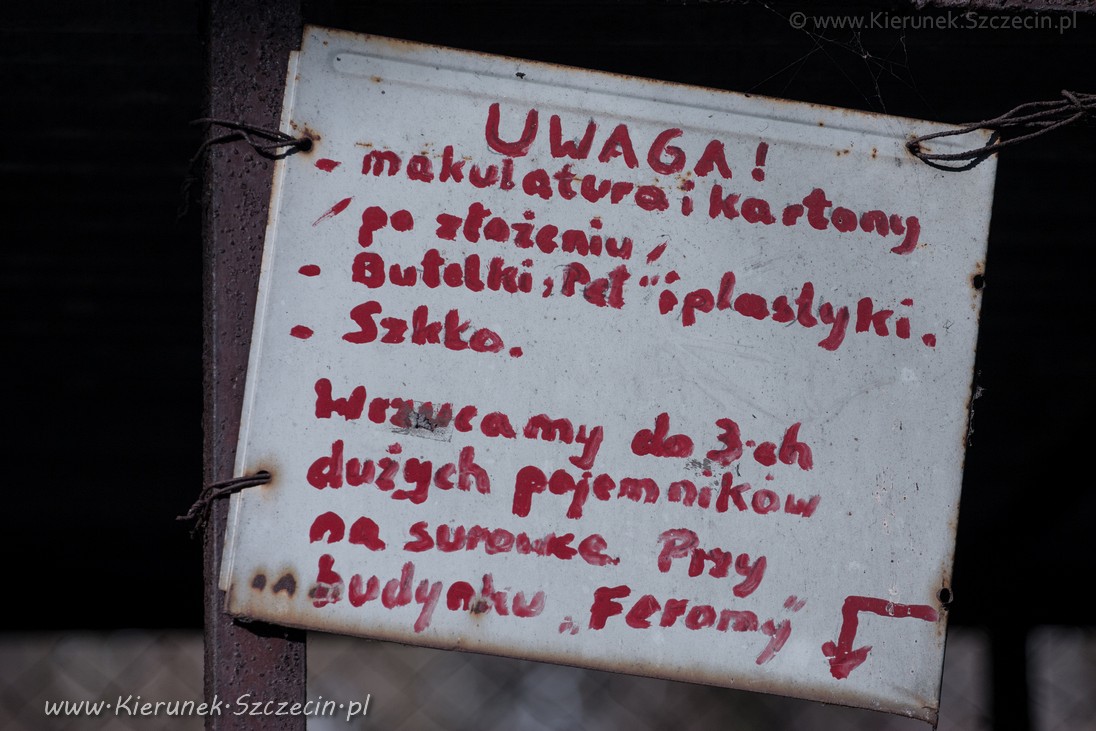 © www.Kierunek.Szczecin.pl
UWAGA!
- makulatura i kartony
/ po złożeniu /
- Butelki „Pet” i plastyki.
- Szkło.
Wrzucamy do 3-ch
dużych pojemników
na surowce. Przy
budynku „Feromy”
www·Kierunek·Szczecin·pl